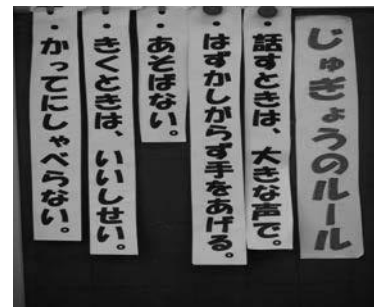 じゅぎょうのルール
・話すときは、大きな声で。
・はずかしがらず手をあげる。
・あそばない。
・きくときは、いいしせい。
・かってにしゃべらない。